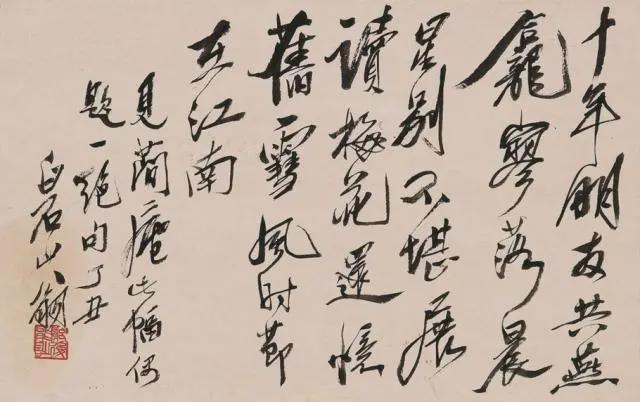 十年朋友共燕
龕寥落晨
星別不堪展
讀梅花還憶
舊雪風時節
在江南
見簡庵此幅偶
題一絕句丁丑
白石山翁